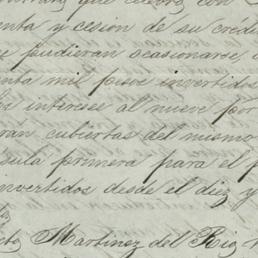 que celebró con
enta y cesion de su crédi
se pudieran ocasionarse,
enta mil pesos invertidos
en interese al nueve por
rán cubiertas del mismo
sula primera para el p
invertidos desde el diez y
Martinez del Rio